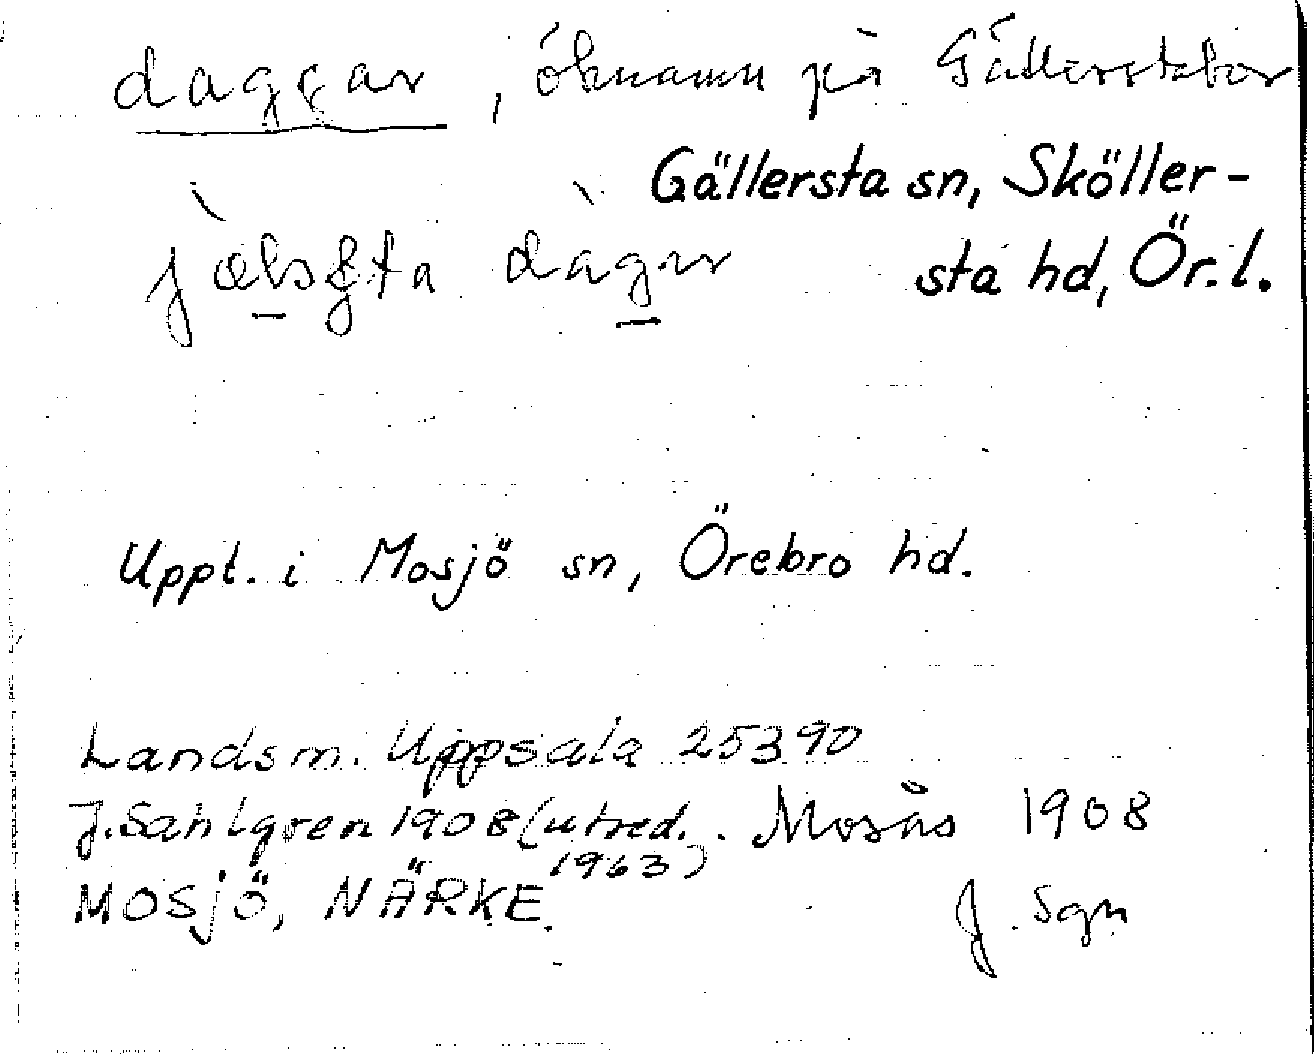 daggar, öknamn på Gällerstabor
Gällersta sn, Sköller-
sta hd, Ör. l.
Uppt. i Mosjö sn, Örebro hd.
Landsm. Uppsala 25390
J. Sahlgren 1908 (utred. 1963)
Mosås 1908
MOSJÖ, NÄRKE.
J. Sgn